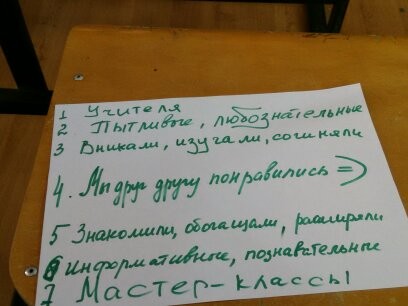 1 Учителя
2 Пытливые, любознательные
3 Вникали, изучали, сочиняли
4. Мы друг другу понравились =)
5 Знакомили, обогащали, расширяли
6 Информативные, познавательные
7 Мастер-классы